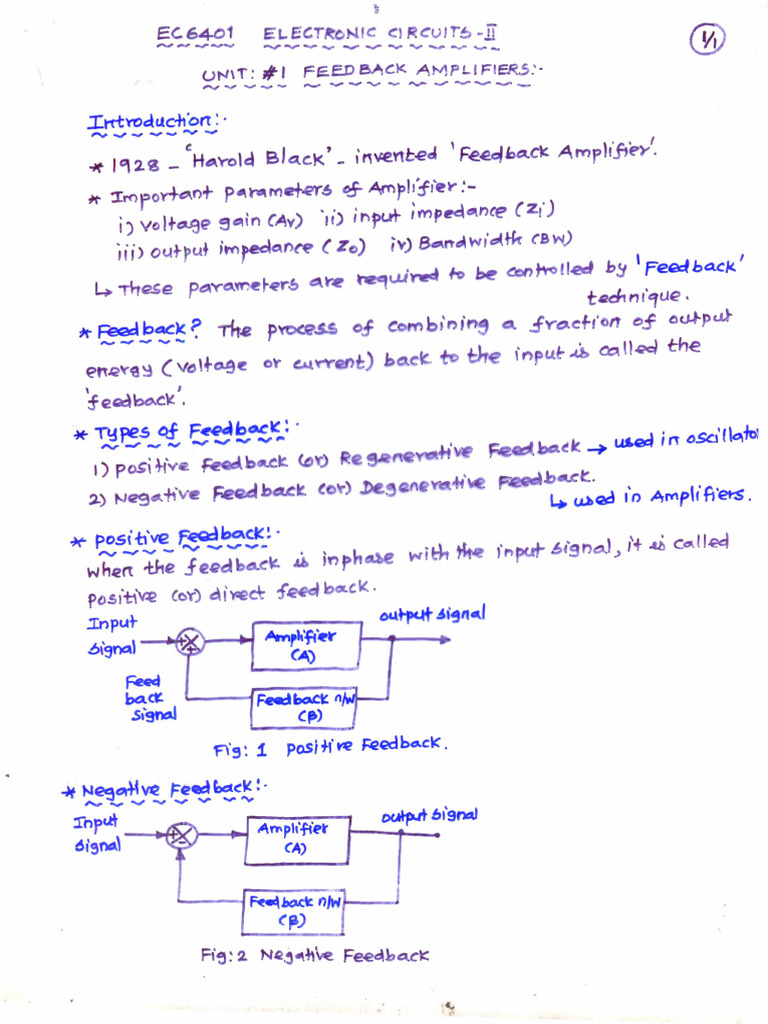 EC6401 ELECTRONIC CIRCUITS-II
1/1
UNIT: #1 FEEDBACK AMPLIFIERS:-
Introduction:-
* 1928 - 'Harold Black' - invented 'Feedback Amplifier'.
* Important parameters of Amplifier:-
i) Voltage gain (Av) ii) input impedance (Zi)
iii) output impedance (Zo) iv) Bandwidth (BW)
↳ These parameters are required to be controlled by 'Feedback'
technique.
* Feedback? The process of combining a fraction of output
energy (voltage or current) back to the input is called the
'feedback'.
* Types of Feedback:-
1) positive feedback (or) Regenerative Feedback → used in oscillator
2) Negative Feedback (or) Degenerative Feedback.
↳ used in Amplifiers.
* positive Feedback:-
When the feedback is inphase with the input signal, it is called
positive (or) direct feedback.
Input
signal
+
+
Amplifier
(A)
output signal
Feed
back
signal
Feedback n/w
(β)
Fig: 1 positive Feedback.
* Negative Feedback:-
Input
signal
+
-
Amplifier
(A)
output signal
Feedback n/w
(β)
Fig: 2 Negative Feedback